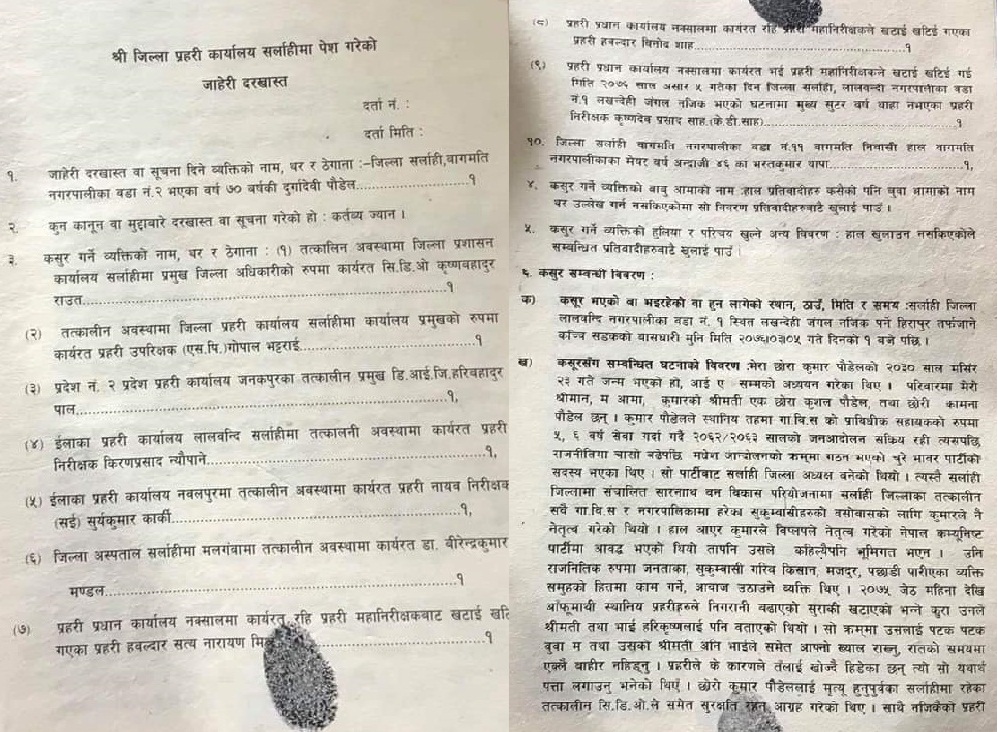 श्री जिल्ला प्रहरी कार्यालय सर्लाहीमा पेश गरेको
जाहेरी दरखास्त
दर्ता नं. :
दर्ता मिति :
१. जाहेरी दरखास्त वा सूचना दिने व्यक्तिको नाम, थर र ठेगाना :–जिल्ला सर्लाही,बागमति
नगरपालीका वडा नं.२ भएका वर्ष ७० बर्षकी दुर्गादेवी पौडेल..................१
२. कुन कानून वा मुद्दाबारे दरखास्त वा सूचना गरेको हो : कर्तव्य ज्यान ।
३. कसुर गर्ने व्यक्तिको नाम, थर र ठेगाना : (१) तत्कालिन अवस्थामा जिल्ला प्रशासन
कार्यालय सर्लाहीमा प्रमुख जिल्ला अधिकारीको रुपमा कार्यरत सि.डि.ओ कृष्णबहादुर
राउत..................................................१
(२) तत्कालीन अवस्थामा जिल्ला प्रहरी कार्यालय सर्लाहीमा कार्यालय प्रमुखको रुपमा
कार्यरत प्रहरी उपरिक्षक (एस.पि.)गोपाल भट्टराई..........................१
(३) प्रदेश नं. २ प्रदेश प्रहरी कार्यालय जनकपुरका तत्कालीन प्रमुख डि.आई.जि.हरिबहादुर
पाल..................................................१,
(४) ईलाका प्रहरी कार्यालय लालवन्दि सर्लाहीमा तत्कालनी अवस्थामा कार्यरत प्रहरी
निरीक्षक किरणप्रसाद न्यौपाने......................................१,
(५) ईलाका प्रहरी कार्यालय नवलपुरमा तत्कालीन अवस्थामा कार्यरत प्रहरी नायब निरीक्षक
(सई) सुर्यकुमार कार्की..........................................१,
(६) जिल्ला अस्पताल सर्लाहीमा मलगंवामा तत्कालीन अवस्थामा कार्यरत डा. बीरेन्द्रकुमार
मण्डल..................................................१
(७) प्रहरी प्रधान कार्यालय नक्सालमा कार्यरत रहि प्रहरी महानिरीक्षकबाट खटाई खटि
गएका प्रहरी हवल्दार सत्य नारायण मि..........................१
(८) प्रहरी प्रधान कार्यालय नक्सालमा कार्यरत रहि प्रहरी महानिरीक्षकले खटाई खटिई गएका
प्रहरी हवल्दार बिनोद शाह......................................१
(९) प्रहरी प्रधान कार्यालय नक्सालमा कार्यरत भई प्रहरी महानिरीक्षकले खटाई खटिई गई
मिति २०७६ साल असार ५ गतेका दिन जिल्ला सर्लाही, लालवन्दी नगरपालीका वडा
नं.१ लखन्देही जंगल नजिक भएको घटनामा मुख्य सुटर वर्ष थाहा नभएका प्रहरी
निरीक्षक कृष्णदेव प्रसाद साह.(के.डी.साह)..........................१
१०. जिल्ला सर्लाही बागमति नगरपालीका वडा नं.११ बागमति निवासी हाल बागमति
नगरपालीकाका मेयर वर्ष अन्दाजी ४६ का भरतकुमार थापा..........................१,
४. कसुर गर्ने व्यक्तिको बाबु आमाको नाम :हाल प्रतिवादीहरु कसैको पनि बुवा आमाको नाम
थर उल्लेख गर्न नसकिएकोमा सो विवरण प्रतिवादीहरुबाटै खुलाई पाउँ ।
५. कसुर गर्ने व्यक्तिको हुलिया र परिचय खुल्ने अन्य विवरण : हाल खुलाउन नसकिएकोले
सम्बन्धित प्रतिवादीहरुबाटै खुलाई पाउँ ।
६. कसुर सम्बन्धी विवरण :
क) कसूर भएको वा भइरहेको वा हुन लागेको स्थान, ठाउँ, मिति र समय :सर्लाही जिल्ला
लालबन्दि नगरपालीका वडा नं. १ स्थित लखन्देही जंगल नजिक पर्ने हिरापुर तर्फजाने
कच्चि सडकको बासघारी मुनि मिति २०७६।०३।०५ गते दिनको १ बजे पछि ।
ख) कसूरसँग सम्बन्धित घटनाको विवरण :मेरा छोरा कुमार पौडेलको २०३० साल मंसिर
२३ गते जन्म भएको हो, आई ए सम्मको अध्ययन गरेका थिए । परिवारमा मेरी
श्रीमान, म आमा, कुमारको श्रीमती एक छोरा कुशल पौडेल, तथा छोरी कामना
पौडेल छन् । कुमार पौडेलले स्थानिय तहमा गा.बि.स को प्राविधीक सहायकको रुपमा
५, ६ वर्ष सेवा गर्दा गर्दै २०६२/२०६३ सालको जनआन्दोलन सक्रिय रही त्यसपछि
राजनीतिमा चासो बढेपछि मधेश आन्दोलनको क्रममा गठन भएको चुरे भावर पार्टीको
सदस्य भएका थिए । सो पार्टीबाट सर्लाही जिल्ला अध्यक्ष बनेको थियो । त्यस्तै सर्लाही
जिल्लामा संचालित सारनाथ वन विकास परियोजनामा सर्लाही जिल्लाका तत्कालीन
सबै गा.बि.स र नगरपालिकामा हरेका सुकुम्वासीहरुको बसोबासको लागि कुमारले नै
नेतृत्व गरेको थियो । हाल आएर कुमारले विप्लवले नेतृत्व गरेको नेपाल कम्युनिष्ट
पार्टीमा आवद्ध भएको थियो तापनि उसले कहिल्यैपनि भूमिगत भएन । उनि
राजनितिक रुपमा जनताका, सुकुम्वासी गरिव किसान, मजदुर, पछाडी पारीएका व्यक्ति
समुहको हितमा काम गर्ने, आवाज उठाउने व्यक्ति थिए । २०७५ जेठ महिना देखि
आँफूमाथी स्थानिय प्रहरीहरुले निगरानी बढाएको सुराकी खटाएको भन्ने कुरा उनले
श्रीमती तथा भाई हरिकृष्णलाई पनि बताएको थियो । सो क्रममा उसलाई पटक पटक
बुवा म तथा उसको श्रीमती अनि भाईले समेत आफ्नो ख्याल राख्नु, रातको समयमा
एक्लै बाहीर नहिंड्नु । प्रहरीले के कारणले तँलाई खोज्दै हिडेका छन् त्यो सो यथार्थ
पत्ता लगाउनु भनेको थिएँ । छोरी कुमार पौडेललाई मुत्यु हुनुपुर्वका सर्लाहीमा रहेका
तत्कालीन सि.डि.ओ.ले समेत सुरक्षति रहन आग्रह गरेको थिए । साथै नजिकैको प्रहरी